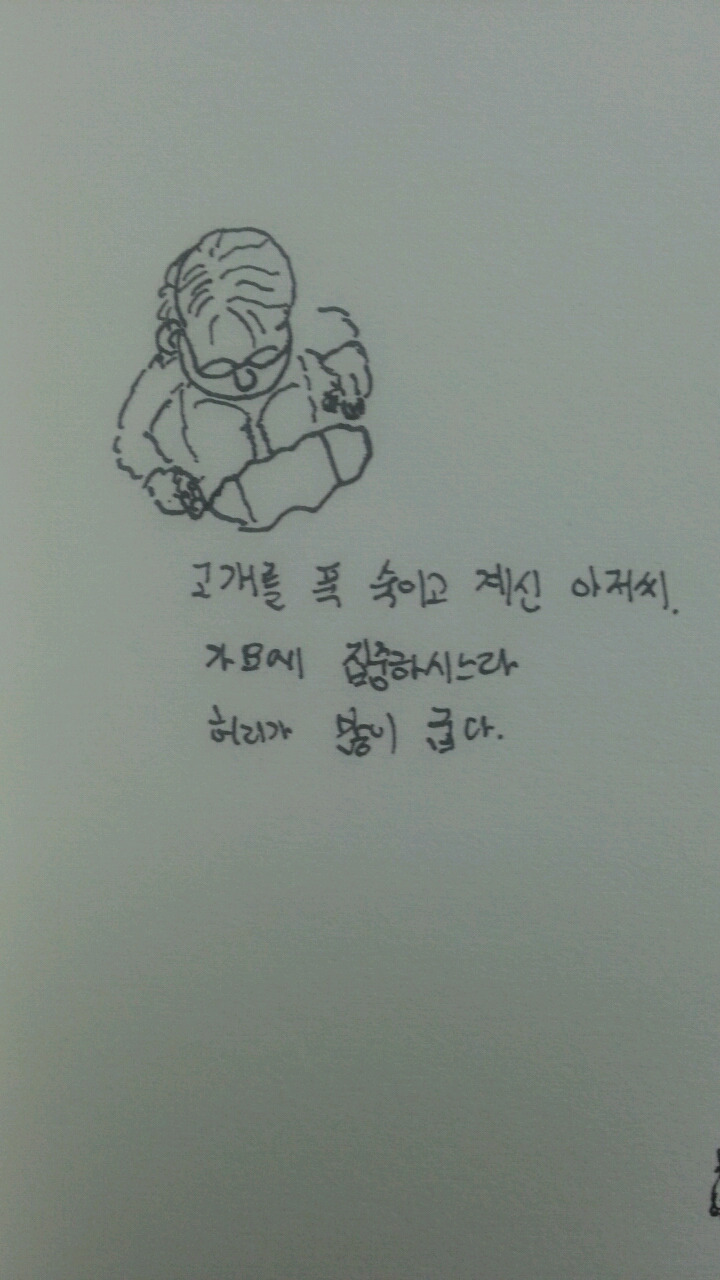 고개를 푹 숙이고 계신 아저씨.
가요에 집중하시느라
허리가 많이 굽다.